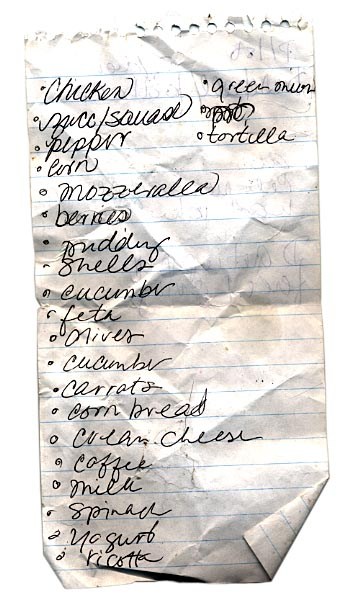 Chicken
zucc/squash
pepper
corn
mozzeralla
berries
pudding
shells
cucumber
feta
olives
cucumber
carrots
corn bread
cream cheese
coffee
milk
spinach
yogurt
ricotta
green onion
tortilla